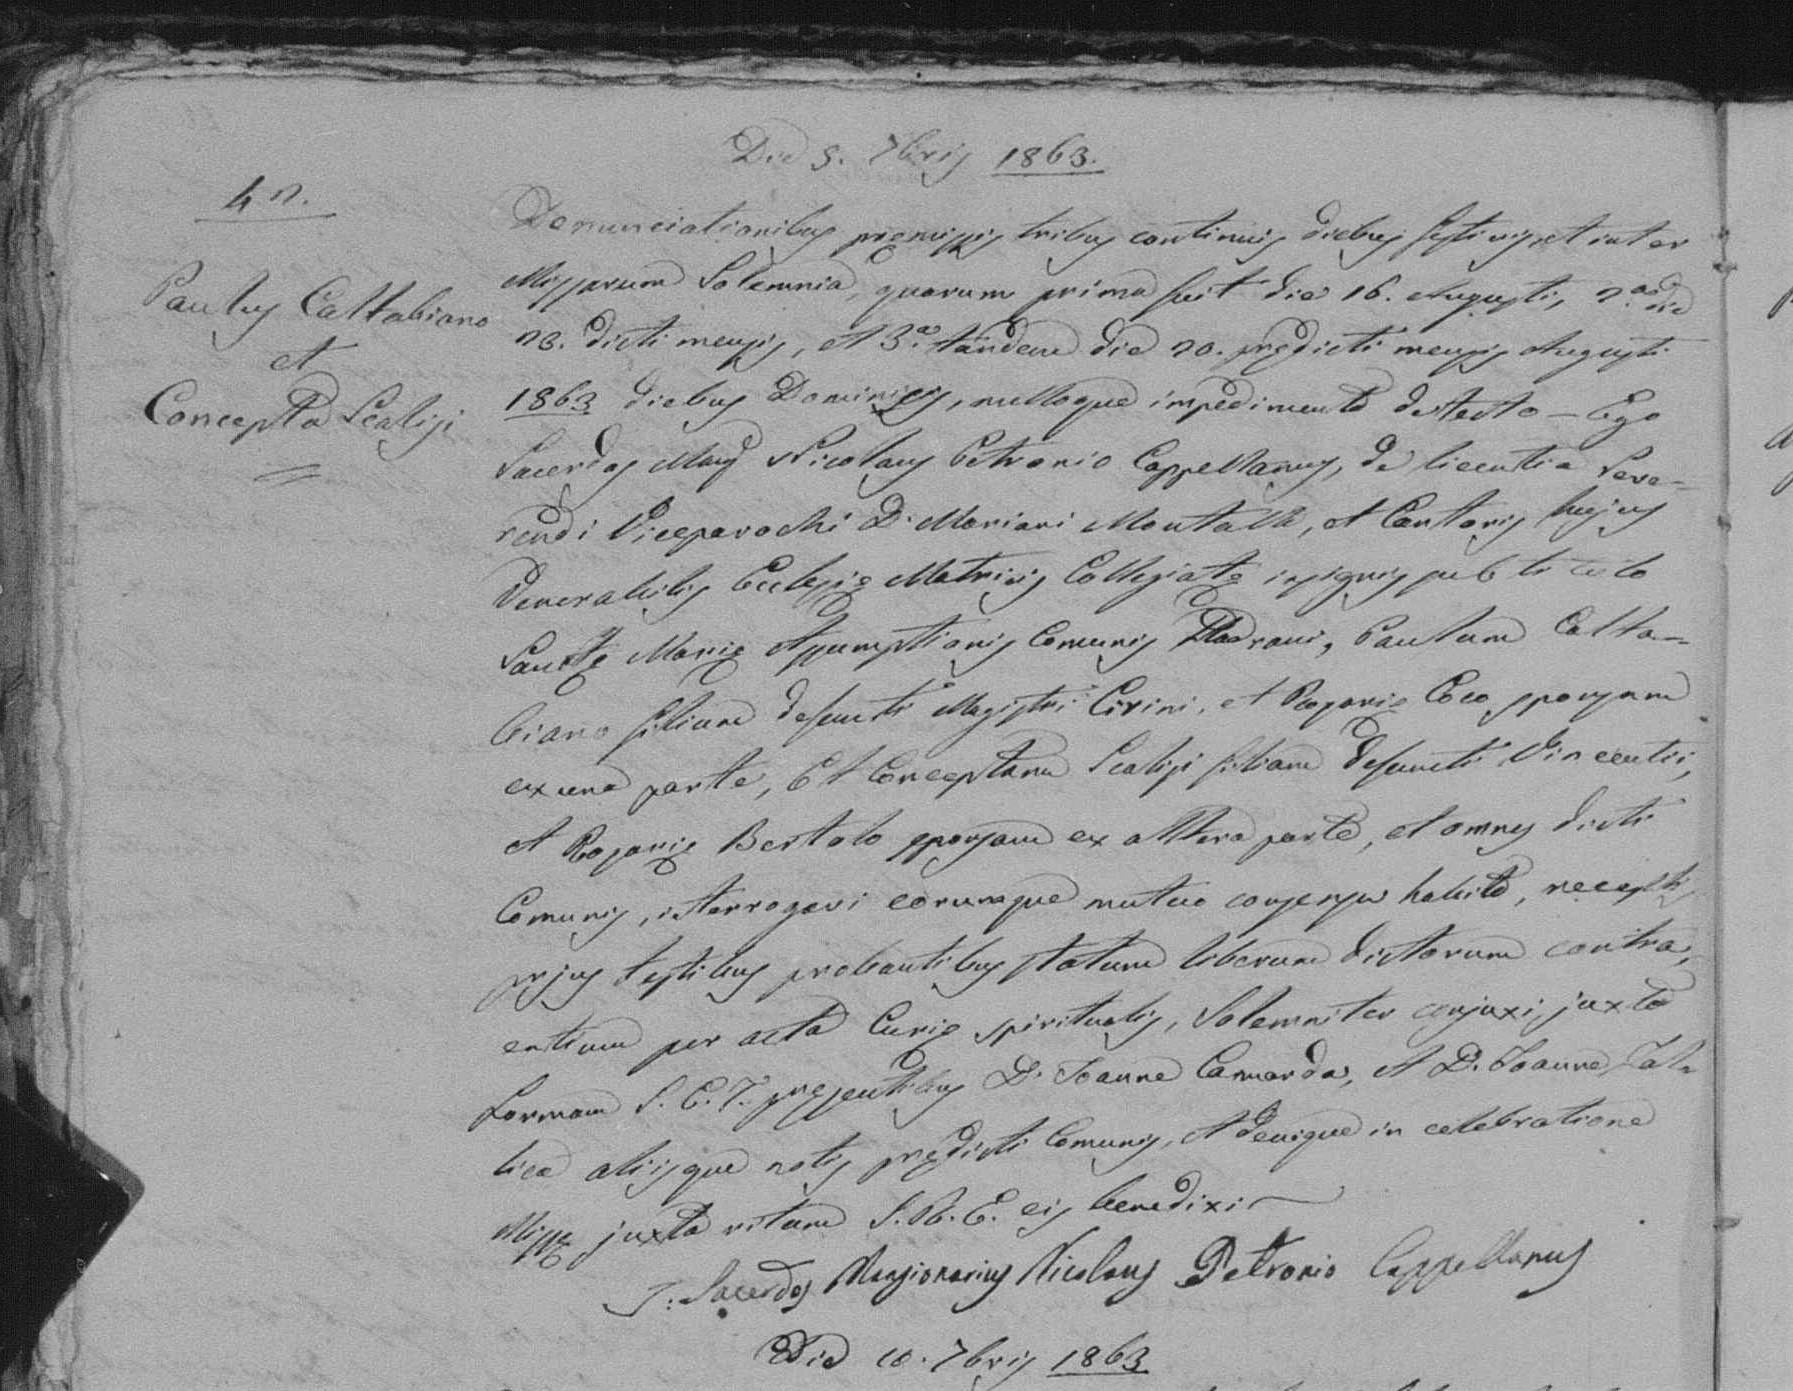 Die 5. 7bris 1863.
42.
Paulus Caltabiano
et
Concepta Scalisi
Denunciationibus premissis tribus continuis diebus festivis, et inter
Missarum Solemnia, quarum prima fuit die 16. Augusti, 2.a die
23. dicti mensis, et 3.a tandem die 30. predicti mensis Augusti
1863 diebus Dominicis, nulloque impedimento detecto – Ego
Sacerdos Nicolaus Petronio Cappellanus, de licentia Reve-
rendi Viceparochi D. Mariani Montalto, et Cantoris hujus
Venerabilis Ecclesie Matricis Collegiate insignis sub titulo
Sancte Marie Assumptionis Comunis Hadrani, Paulum Calta-
biano filium defuncti Magistri Cirini, et Rosarie Coco sponsum
ex una parte, Et Conceptam Scalisi filiam defuncti Vincentii,
et Rosarie Bertolo sponsam ex altera parte, et omnes dicti
Comunis, interrogavi eorumque mutuo consensu habito, receptis
prius testibus probantibus statum liberum dictorum contra-
entium per acta Curie spiritualis, Solemniter conjuxi, juxta
formam S. C. T. presentibus D. Joanne Camarda, et D. Joanne Tala
lica aliisque notis predicti Comunis, et denique in celebratione
Misse juxta ritum S. R. E. eis benedixi
Sacerdos Mansionarius Nicolaus Petronio Cappellanus
Die 10. 7bris 1863